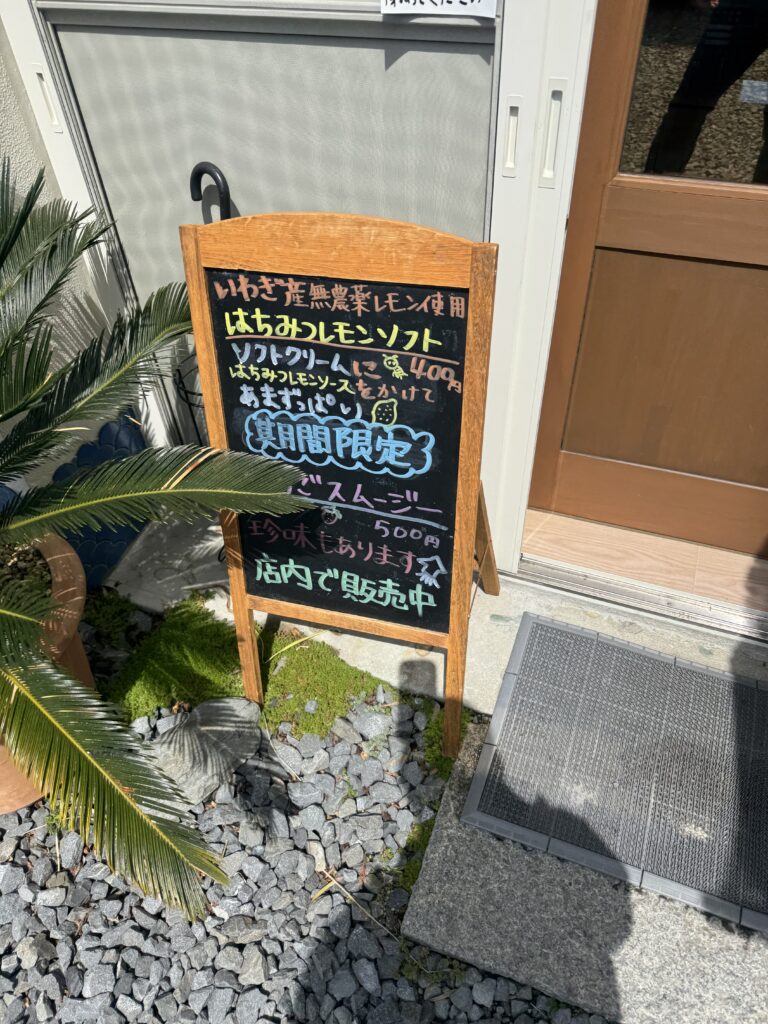 いわぎ産無農薬レモン使用
はちみつレモンソフト
ソフトクリームに 400円
はちみつレモンソースをかけて
あまずっぱい
期間限定
ごスムージー
500円
珍味もあります
店内で販売中